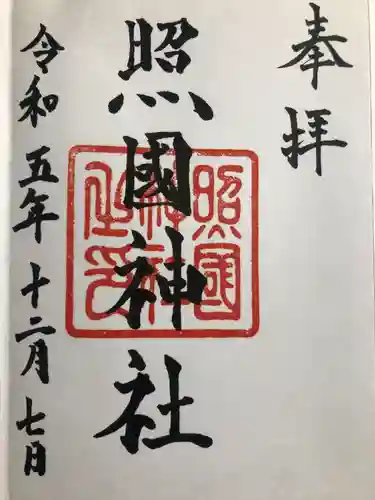 奉拝
照國神社
令和五年十二月七日
照國
神社
之印